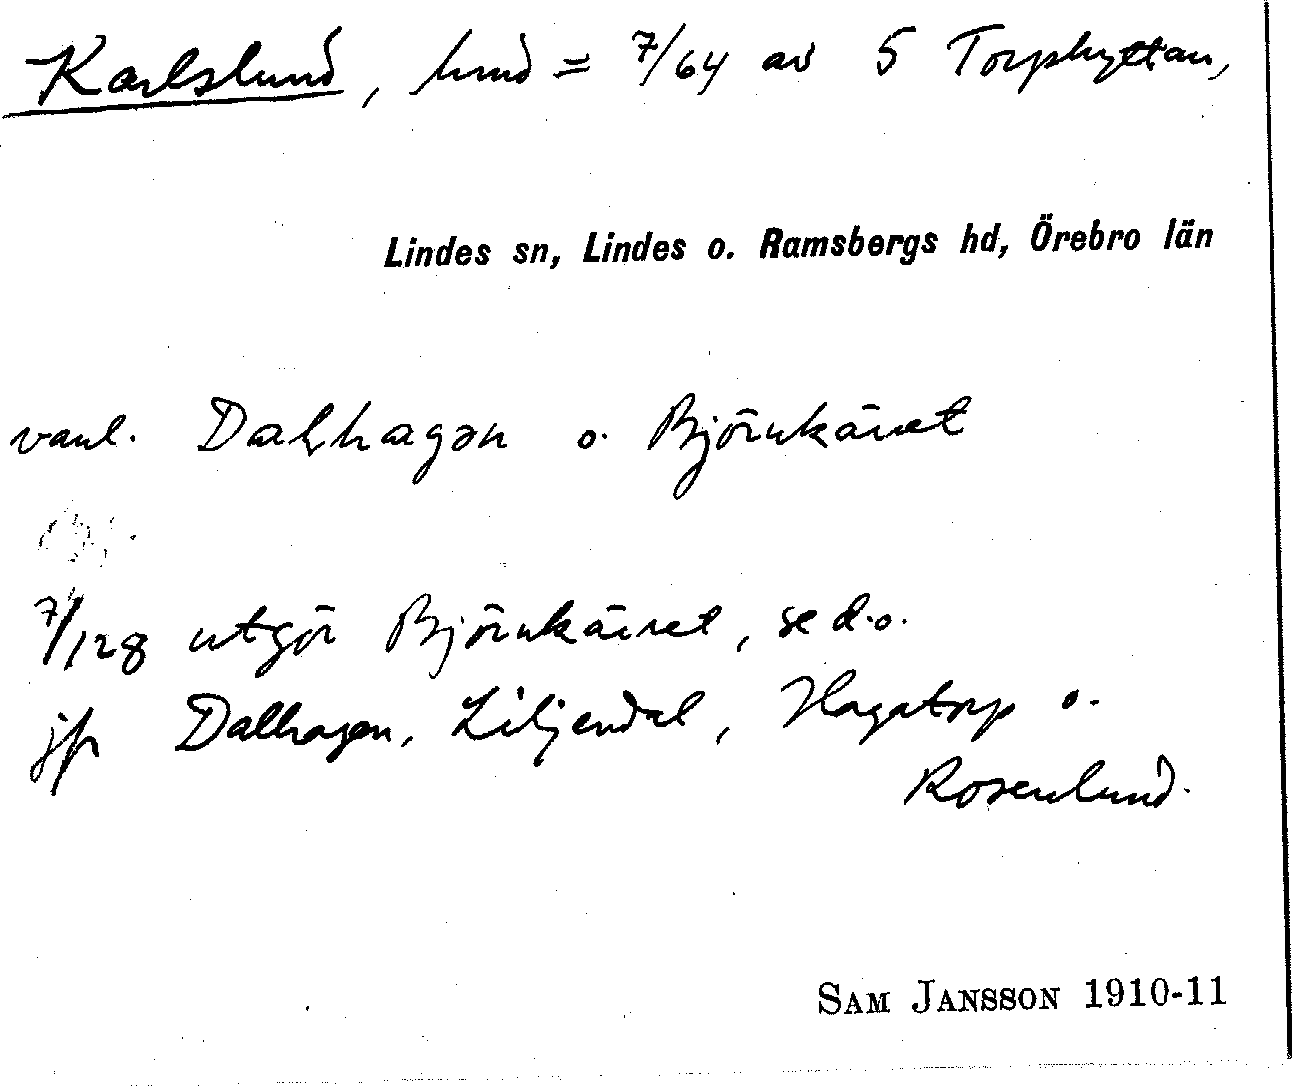 Karlslund, hmd = 7/64 av 5 Torphyttan,
Lindes sn, Lindes o. Ramsbergs hd, Örebro län
vanl. Dalhagən o. Björnkärret
7/128 utgör Björnkärret, se d.o.
jfr Dalhagen, Liljendal, Hagatorp o.
Rosenlund.
SAM JANSSON 1910-11